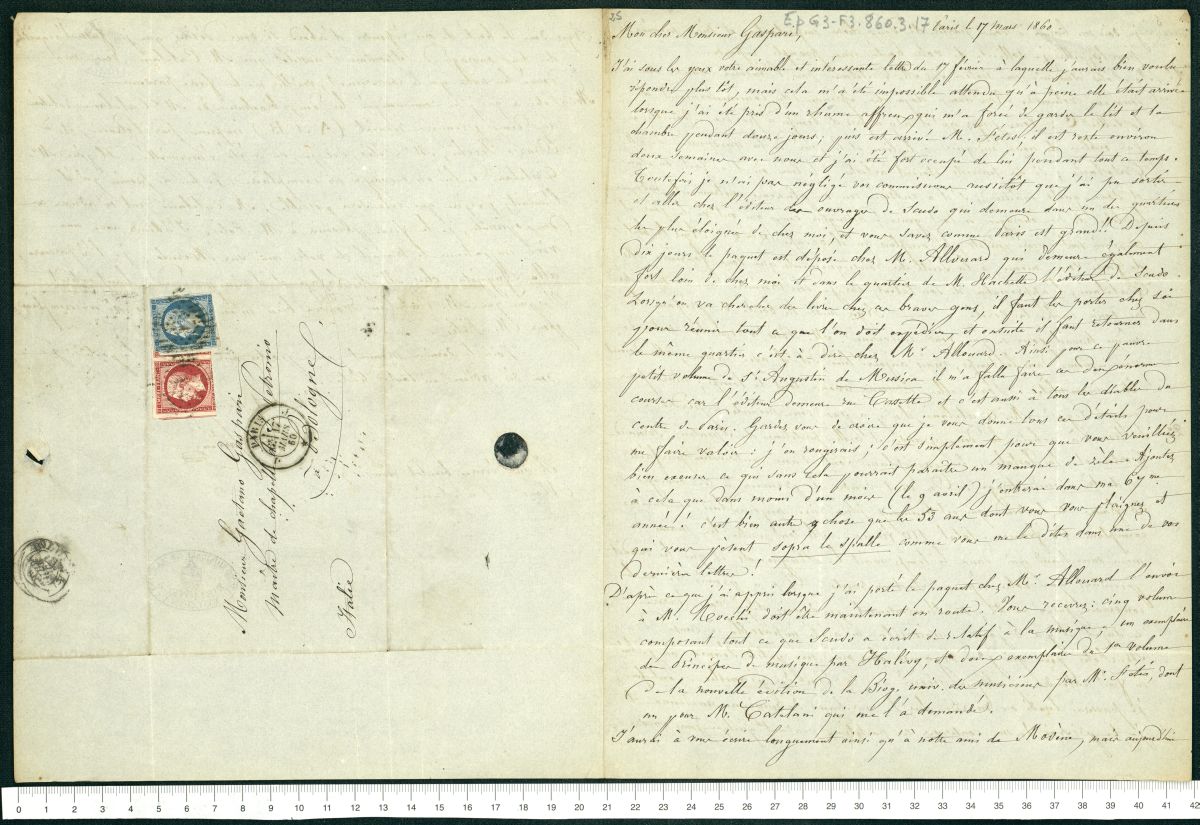 25
EpG3-F3.860.3.17
Paris le 17 mars 1860
Mon cher Monsieur Gaspari,
J'ai sous les yeux votre aimable et intéressante lettre du 17 février à laquelle j'aurais bien voulu
répondre plus tôt, mais cela m'a été impossible attendu qu'à peine elle était arrivée
lorsque j'ai été pris d'un rhume affreux qui m'a forcé de garder le lit et la
chambre pendant douze jours; puis est arrivé M. Fétis; il est resté environ
deux semaines avec nous et j'ai été fort occupé de lui pendant tout ce temps.
Toutefois je n'ai pas négligé vos commissions aussitôt que j'ai pu sortir
et aller chez l'éditeur des ouvrages de Scudo qui demeure dans un des quartiers
les plus éloignés de chez moi, et vous savez comme Paris est grand! Depuis
dix jours le paquet est déposé chez M. Allouard qui demeure également
fort loin de chez moi et dans le quartier de M. Hachette l'éditeur de Scudo.
Lorsqu'on va chercher des livres chez ces braves gens, il faut les porter chez soi
pour réunir tout ce que l'on doit expédier et ensuite il faut retourner dans
le même quartier c'est à dire chez Mr. Allouard. Ainsi pour ce pauvre
petit volume de St Augustin de Musica il m'a fallu faire ces deux énormes
courses car l'éditeur demeure rue Cassette et c'est aussi à tous les diables du
centre de Paris. Gardez vous de croire que je vous donne tous ces détails pour
me faire valoir: j'en rougirais; c'est simplement pour que vous veuilliez
bien excuser ce qui sans cela pourrait paraître un manque de zèle. Ajoutez
à cela que dans moins d'un mois (le 9 avril) j'entrerai dans ma 67me
année! c'est bien autre chose que les 53 ans dont vous vous plaignez et
qui vous pèsent sopra le spalle comme vous me le dites dans une de vos
dernières lettres!
D'après ce que j'ai appris lorsque j'ai porté le paquet chez Mr. Allouard l'envoi
à M. Rocchi doit être maintenant en route. Vous recevrez: cinq volumes
composant tout ce que Scudo a écrit de relatif à la musique, un exemplaire
des Principes de musique par Halévy, et deux exemplaires du 1er volume
de la nouvelle édition de la Biog. univ. des musiciens par Mr. Fétis, dont
un pour M. Catelani qui me l'a demandé.
J'aurai à vous écrire longuement ainsi qu'à notre ami de Modène, mais aujourd'hui
Monsieur Gaetano Gaspari
Maître de chapelle à St Petronio
à Bologne
Italie
PARIS
17
MARS
60
0 1 2 3 4 5 6 7 8 9 10 11 12 13 14 15 16 17 18 19 20 21 22 23 24 25 26 27 28 29 30 31 32 33 34 35 36 37 38 39 40 41 42